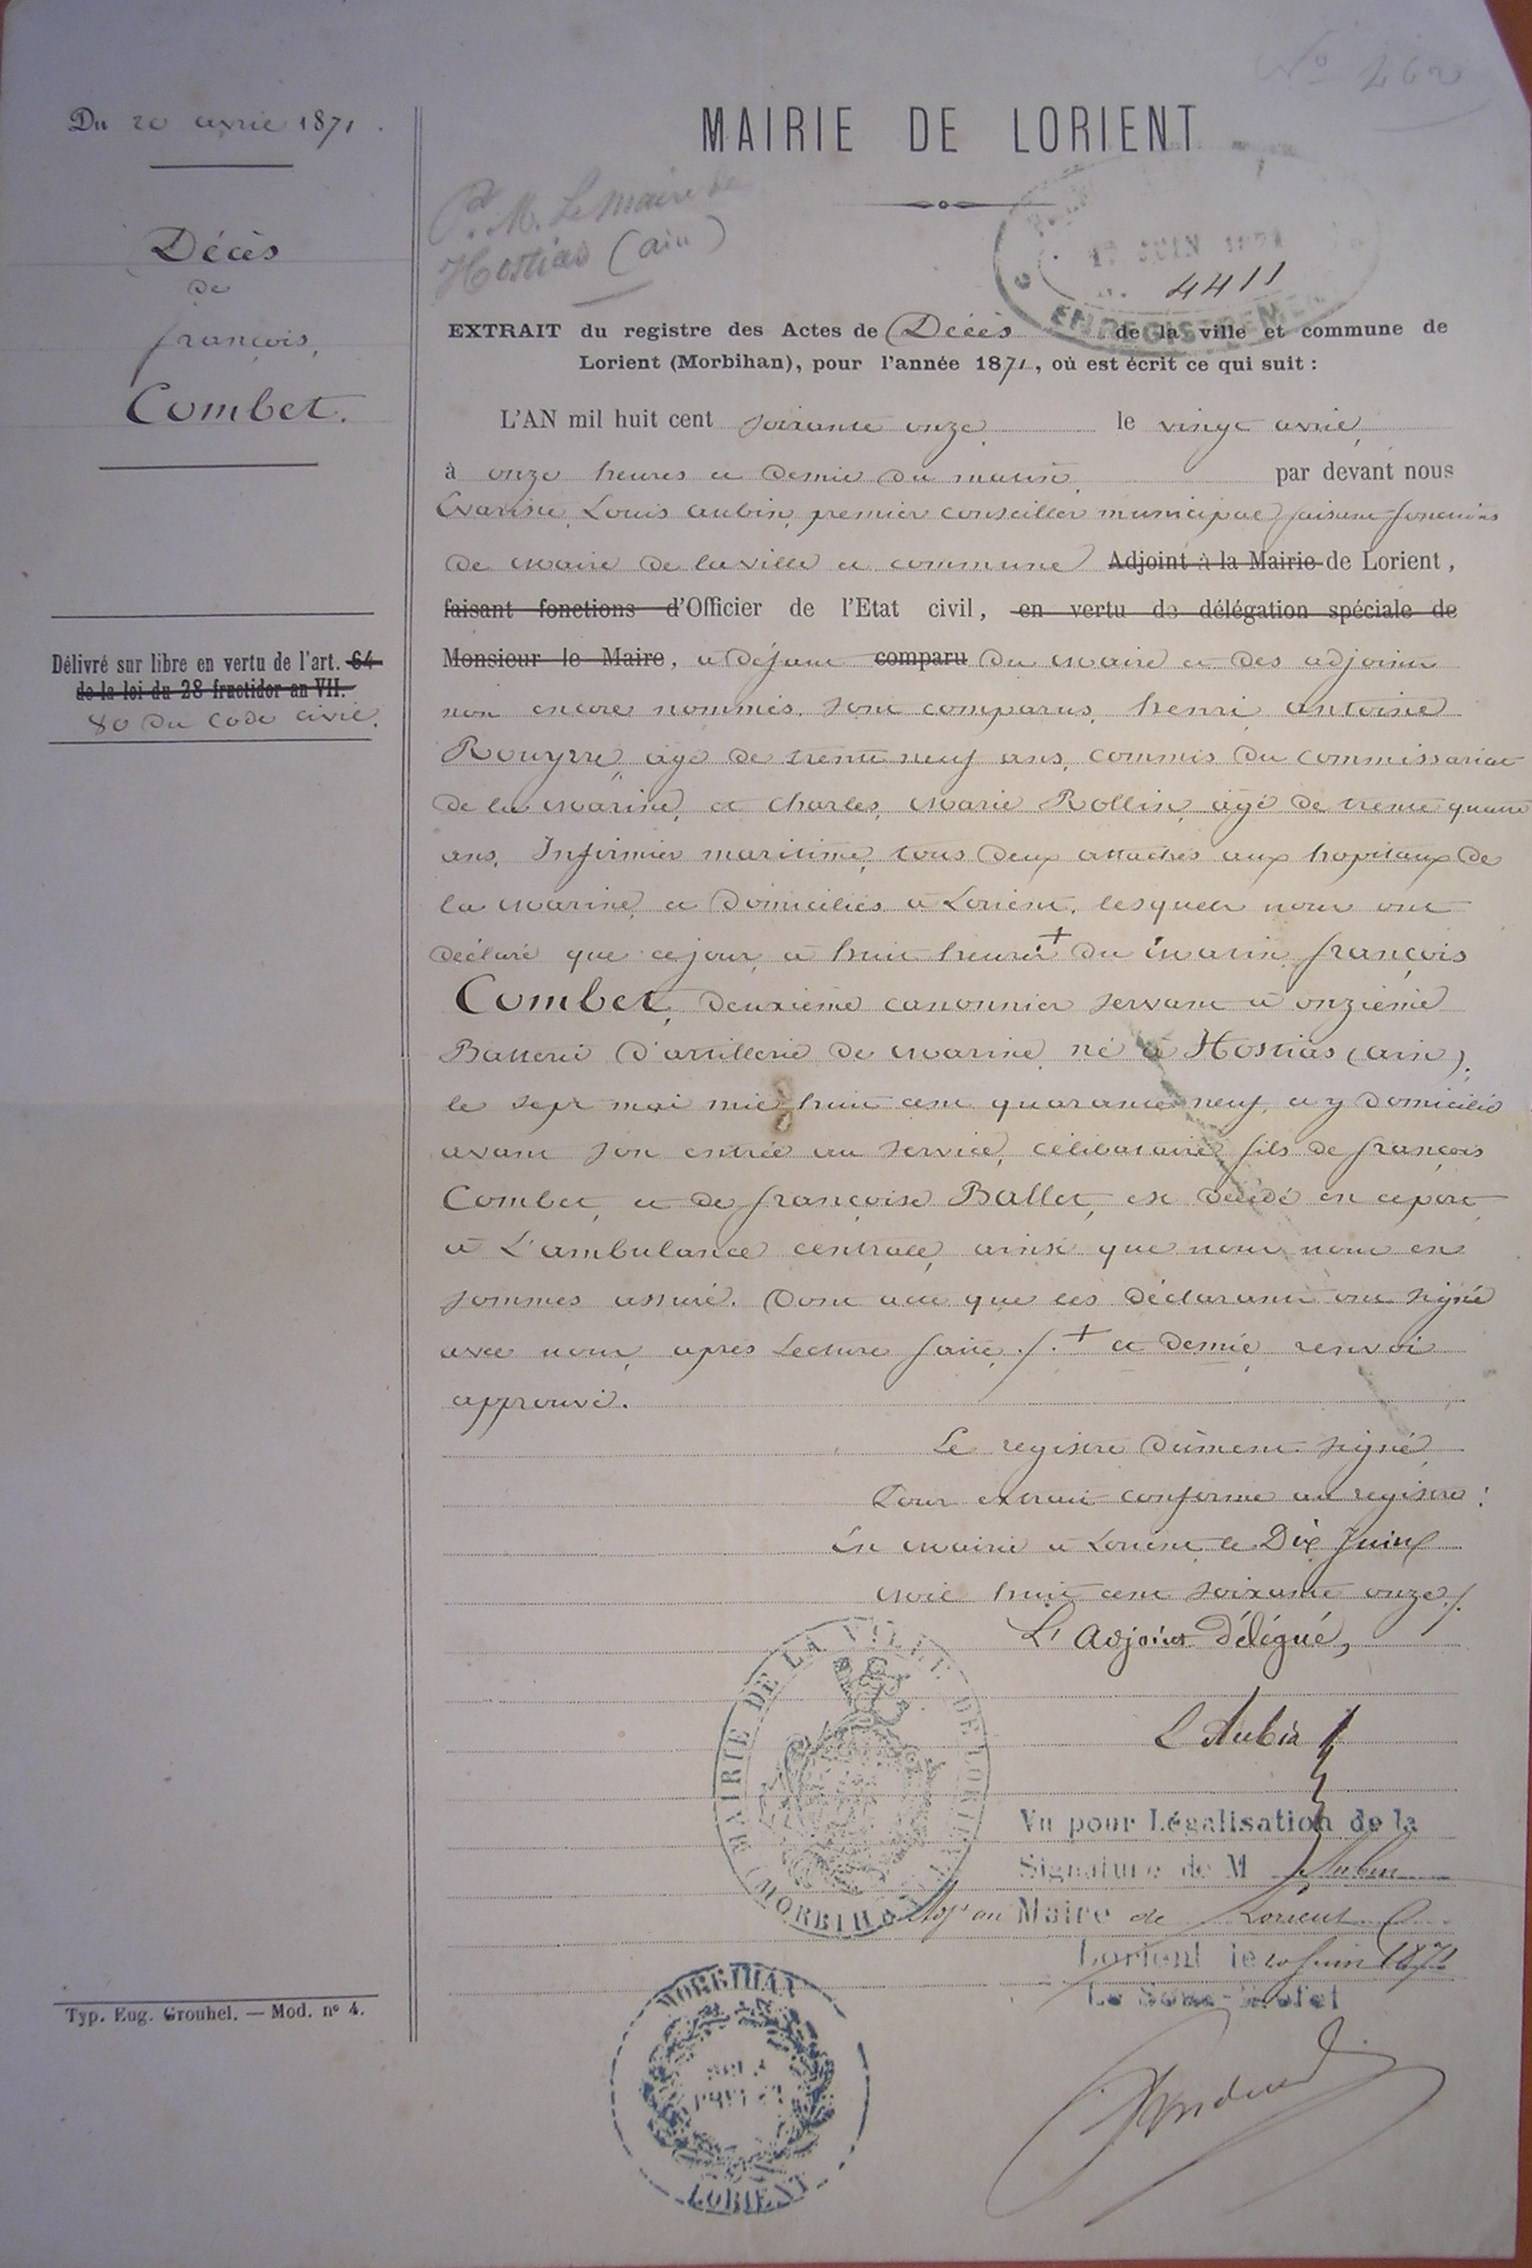 Nº 462
Du 20 avril 1871.
Décès
de
françois,
Combet.
Délivré sur libre en vertu de l'art. 64
de la loi du 28 fructidor an VII.
80 du code civil.
Typ. Eug. Grouhel. — Mod. nº 4.
MAIRIE DE LORIENT
Pr M. Le Maire de
Hostias (ain)
JUIN 1871
4411
ENREGISTREMENT
EXTRAIT du registre des Actes de Décès de la ville et commune de
Lorient (Morbihan), pour l'année 1871, où est écrit ce qui suit :
L'AN mil huit cent soixante onze, le vingt avril,
à onze heures et demie du matin, par devant nous
Evariste, Louis aubin, premier conseiller municipal, faisant fonctions
de Maire de la ville et commune Adjoint à la Mairie de Lorient,
faisant fonctions d'Officier de l'Etat civil, en vertu de délégation spéciale de
Monsieur le Maire, à défaut comparu du Maire et des adjoints
non encore nommés, sont comparus, henri antoine
Rouyrre, âgé de trente neuf ans, commis du commissariat
de la Marine, et charles, Marie Rollin, âgé de trente quatre
ans, Infirmier maritime, tous deux attachés aux hopitaux de
la Marine, et domiciliés à Lorient, lesquels nous ont
déclaré que ce jour, à huit heures + du Matin, françois
Combet, deuxième canonnier servant à onzième
Batterie d'artillerie de Marine, né à Hostias (ain),
le sept mai mil huit cent quarante neuf, et y domicilié
avant son entrée au service, célibataire, fils de françois
Combet, et de françoise Ballet, est décédé en ce port
à L'ambulance centrale, ainsi que nous nous en
sommes assuré. Dont acte que les déclarants ont signé
avec nous, après Lecture faite./. + et demie, renvoi
approuvé.
Le registre dûment signé
Pour extrait conforme au registre :
En Mairie à Lorient le Dix Juin
Mil huit cent soixante onze./.
L'Adjoint Délégué,
L Aubin
MAIRIE DE LA VILLE DE LORIENT
(MORBIHAN)
Vu pour Légalisation de la
Signature de M Aubin
Adjt au Maire de Lorient
Lorient le 10 Juin 1871
Le Sous-Préfet
MORBIHAN
LORIENT